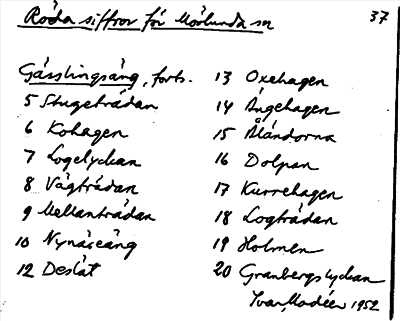 Röda siffror för Mörlunda sn
37
Gässlingsäng, forts.
5 Stugeträdan
6 Kohagen
7 Logelyckan
8 Vägträdan
9 Mellanträdan
10 Nynäseäng
12 Deslät
13 Oxehagen
14 Ängehagen
15 Åländorna
16 Dolpan
17 Kurrehagen
18 Logträdan
19 Holmen
20 Granbergslyckan
Ivar Modéer 1952